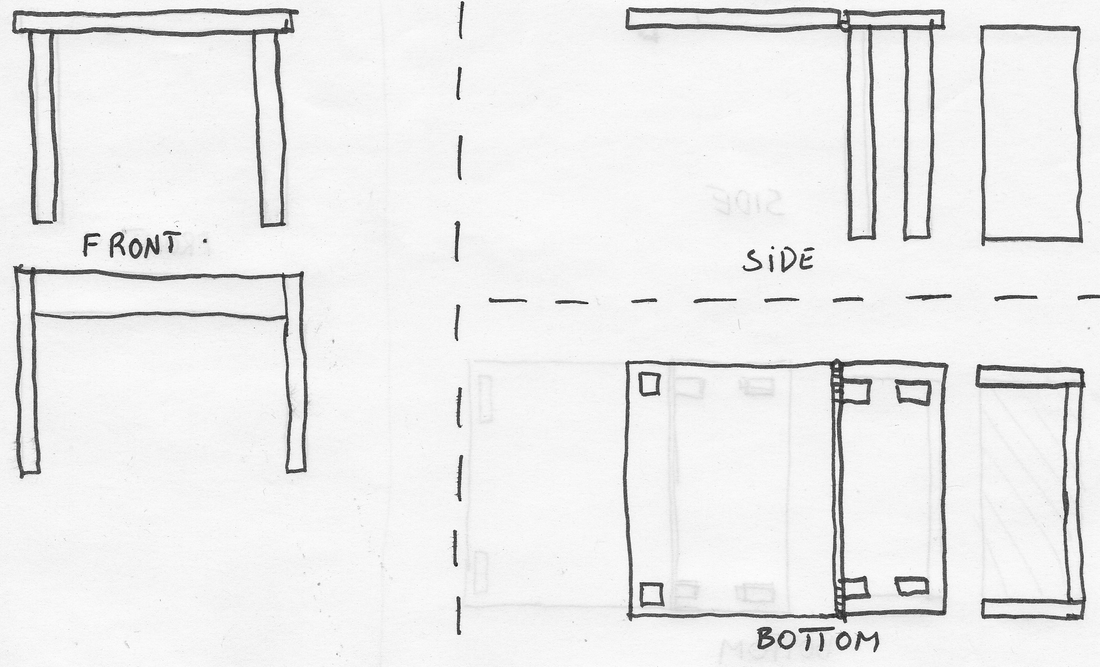 FRONT.
SIDE
BOTTOM